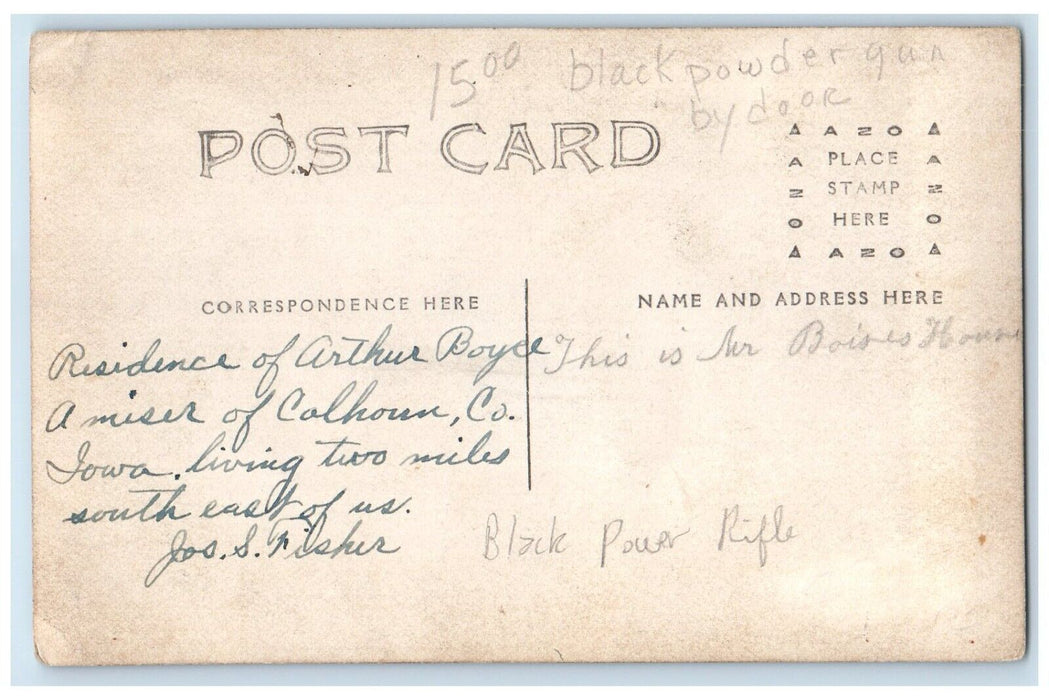 15⁰⁰ black powder gun
by door
POST CARD
▲ A Z O ▲
A PLACE A
Z STAMP Z
O HERE O
▲ A Z O ▲
CORRESPONDENCE HERE
NAME AND ADDRESS HERE
Residence of Arthur Boyce
A miser of Calhoun, Co.
Iowa. living two miles
south east of us.
Jos. S. Fisher
This is Mr Boises
Black Power Rifle